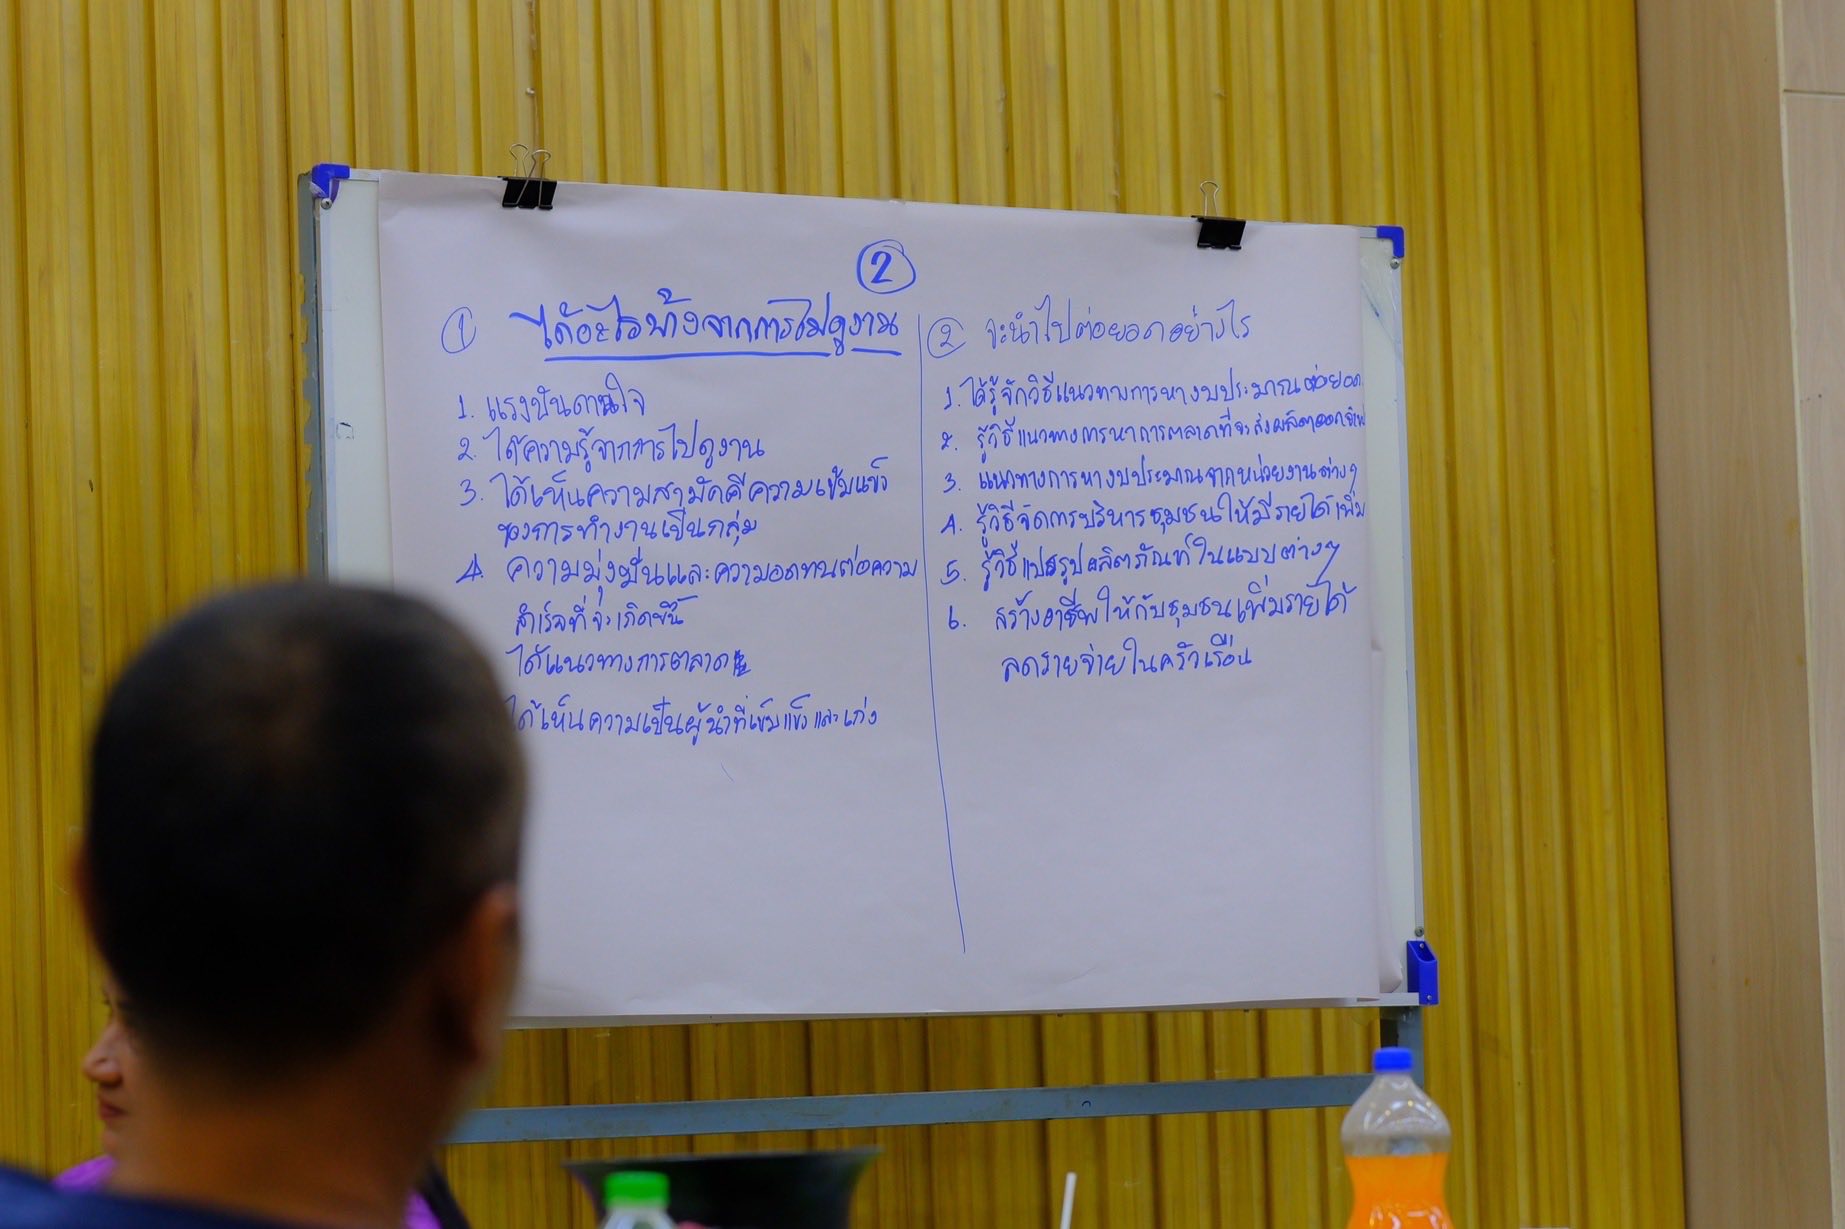 2
1 ได้อะไรบ้างจากการไปดูงาน
1. แรงบันดาลใจ
2. ได้ความรู้จากการไปดูงาน
3. ได้เห็นความสามัคคีความเข้มแข็ง
ของการทำงานเป็นกลุ่ม
4. ความมุ่งมั่นและความอดทนต่อความ
สำเร็จที่จะเกิดขึ้น
ได้แนวทางการตลาด
ได้เห็นความเป็นผู้นำที่เข้มแข็งและเก่ง
2 จะนำไปต่อยอดอย่างไร
1. ได้รู้จักวิธีแนวทางการหางบประมาณต่อยอด
2. รู้วิธีแนวทางการหาการตลาดที่จะส่งผลิตออก
3. แนวทางการหางบประมาณจากหน่วยงานต่างๆ
4. รู้วิธีจัดการบริหารชุมชนให้มีรายได้เพิ่ม
5. รู้วิธีแปรรูปผลิตภัณฑ์ในแบบต่างๆ
6. สร้างอาชีพให้กับชุมชนเพิ่มรายได้
ลดรายจ่ายในครัวเรือน